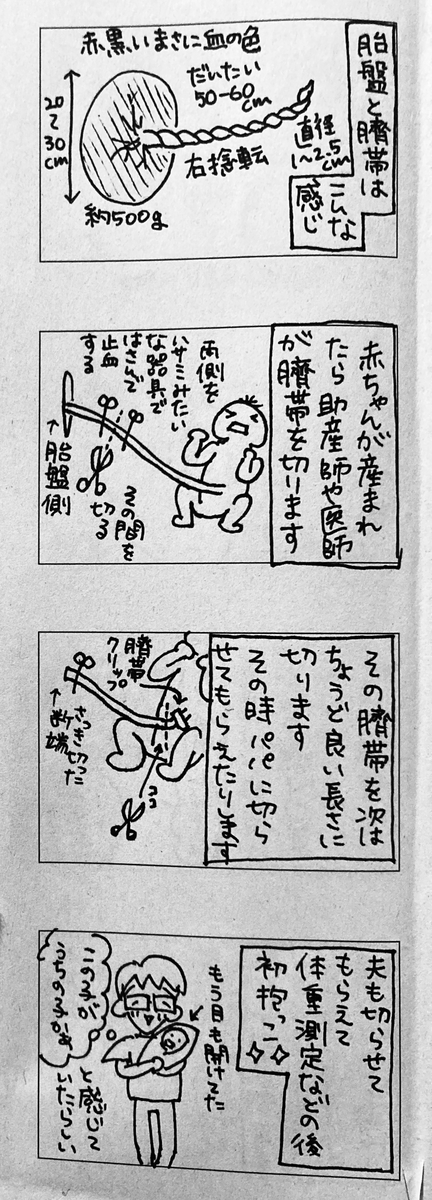 胎盤と臍帯は
こんな
感じ
赤黒いまさに血の色
だいたい
50-60
cm
直径
1〜2.5
cm
右捻転
20
〜
30
cm
約500g
赤ちゃんが産まれ
たら助産師や医師
が臍帯を切ります
両側を
ハサミみたい
な器具で
はさんで
止血
する
その間を
切る
↑胎盤側
その臍帯を次は
ちょうど良い長さに
切ります
その時パパに切ら
せてもらえたりします
臍帯
クリップ
ココ
さっき切った
↑断端
夫も切らせて
もらえて
体重測定などの後
初抱っこ✧✧
もう目も開けてた
この子が
うちの子かぁ
と感じて
いたらしい